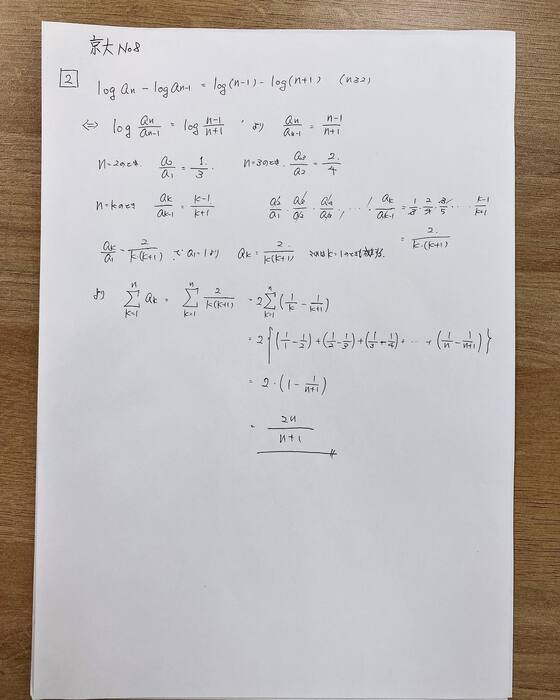 京大 No8
2
log an - log an-1 = log(n-1) - log(n+1) (n≧2)
⇔ log an/an-1 = log n-1/n+1 より an/an-1 = n-1/n+1
n=2のとき. a2/a1 = 1/3. n=3のとき. a3/a2 = 2/4
n=kのとき ak/ak-1 = k-1/k+1 a2/a1 · a3/a2 · a4/a3 , ... , ak/ak-1 = 1/3 · 2/4 · 3/5 ···· k-1/k+1
= 2/k·(k+1)
ak/a1 = 2/k·(k+1) で a1=1より ak = 2/k(k+1) これはk=1のとき
より Σ[k=1,n] ak = Σ[k=1,n] 2/k(k+1) = 2Σ[k=1,n](1/k - 1/k+1)
= 2{(1/1 - 1/2) + (1/2 - 1/3) + (1/3 - 1/4) + ··· + (1/n - 1/n+1)}
= 2·(1 - 1/n+1)
= 2n/n+1